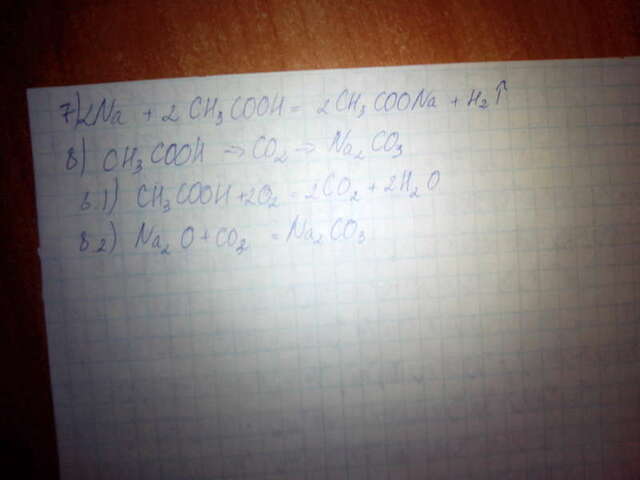 7) 2Na + 2 CH₃COOH = 2CH₃COONa + H₂↑
8) CH₃COOH → CO₂ → Na₂CO₃
8.1) CH₃COOH + 2O₂ = 2CO₂ + 2H₂O
8.2) Na₂O + CO₂ = Na₂CO₃